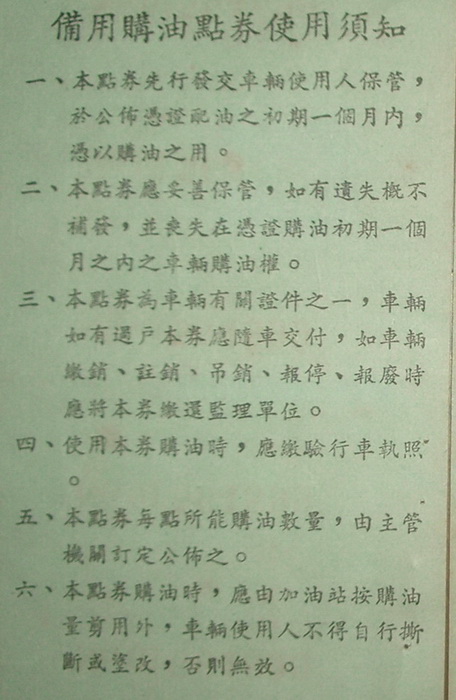 備用購油點券使用須知
一、本點券先行發交車輛使用人保管，
於公佈憑證配油之初期一個月內，
憑以購油之用。
二、本點券應妥善保管，如有遺失概不
補發，並喪失在憑證購油初期一個
月之內之車輛購油權。
三、本點券為車輛有關證件之一，車輛
如有過戶本券應隨車交付，如車輛
繳銷、註銷、吊銷、報停、報廢時
應將本券繳還監理單位。
四、使用本券購油時，應繳驗行車執照
。
五、本點券每點所能購油數量，由主管
機關訂定公佈之。
六、本點券購油時，應由加油站按購油
量剪用外，車輛使用人不得自行撕
斷或塗改，否則無效。